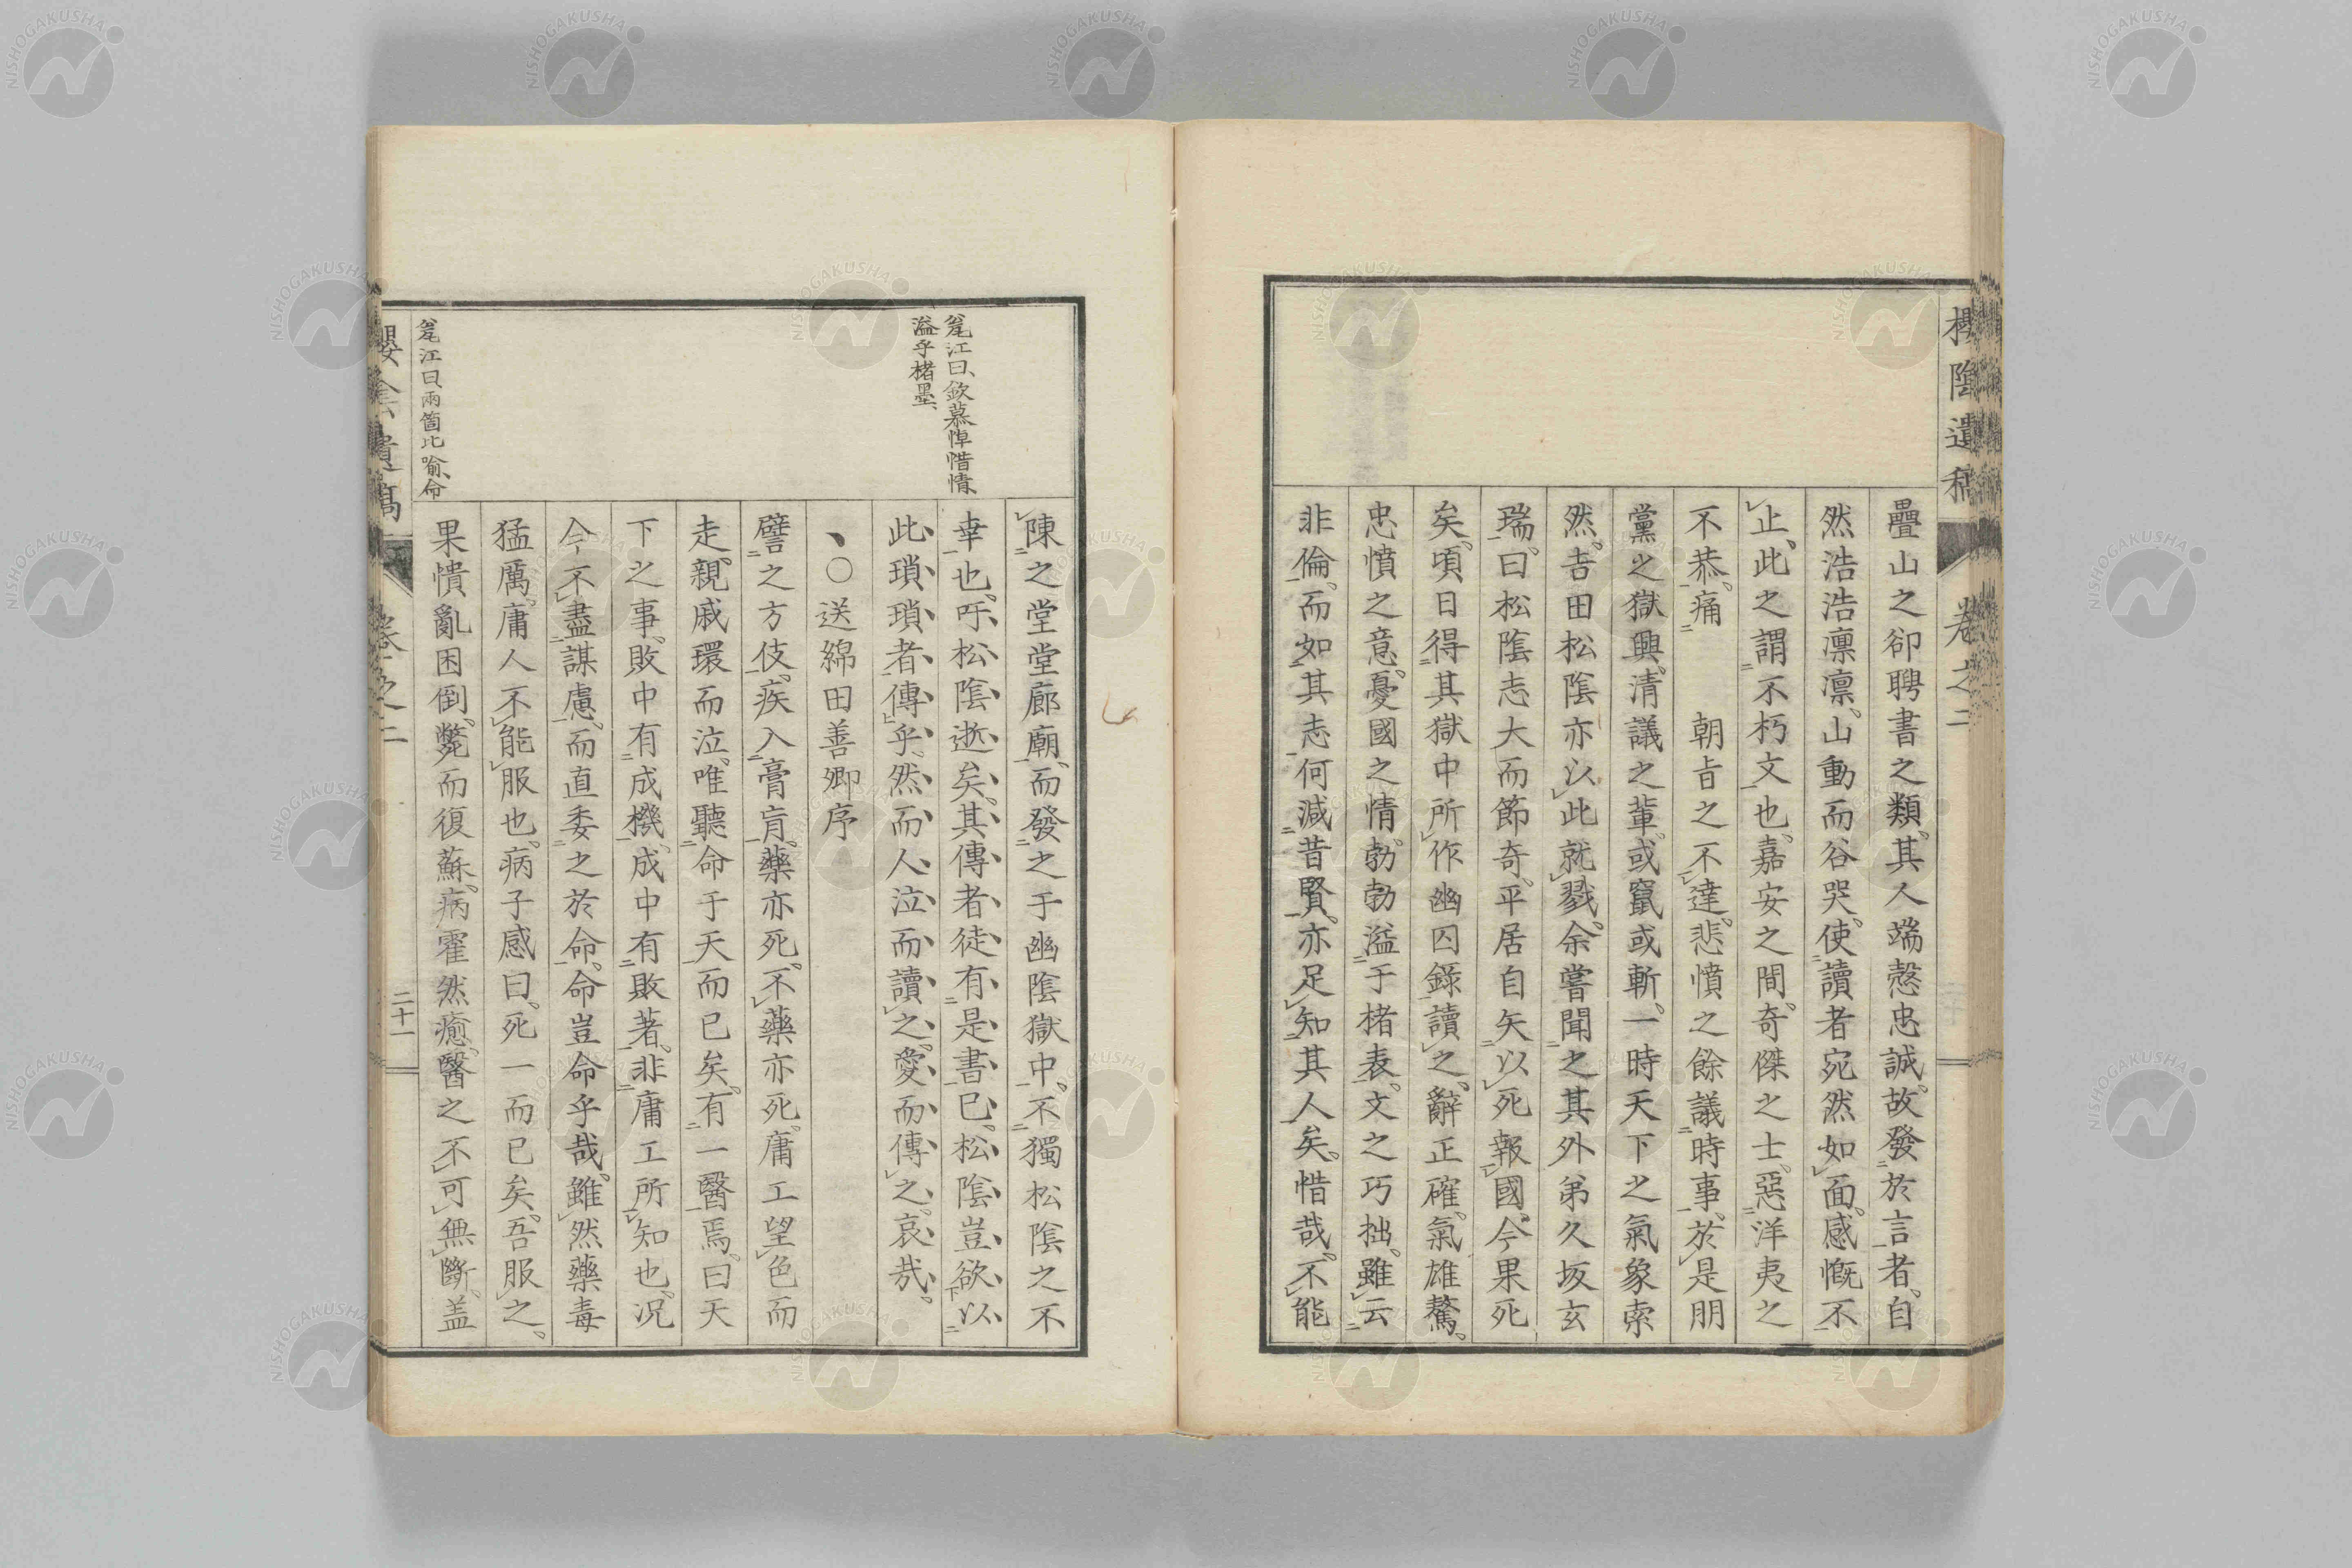 櫻陰遺稿
卷之二
疊山之卻聘書之類、其人端慤忠誠、故發於言者、自
然浩浩凛凛、山動而谷哭、使讀者宛然如面、感慨不
止、此之謂不朽文也、嘉安之間、奇傑之士、惡洋夷之
不恭、痛　朝旨之不達、悲憤之餘議時事、於是朋
黨之獄興、清議之輩、或竄或斬、一時天下之氣象索
然、吉田松陰亦以此就戮、余嘗聞之其外弟久坂玄
瑞、曰、松陰志大而節奇、平居自矢以死報國、今果死
矣、頃日得其獄中所作幽囚錄讀之、辭正確、氣雄驁、
忠憤之意、憂國之情、勃勃溢于楮表、文之巧拙、雖云
非倫、而如其志何減昔賢、亦足知其人矣、惜哉、不能
陳之堂堂廊廟、而發之于幽陰獄中、不獨松陰之不
幸也、吁、松陰逝矣、其傳者徒有是書已、松陰豈欲以
此瑣瑣者傳乎、然而人泣而讀之、愛而傳之、哀哉、
毿江曰、欽慕悼惜情、
溢乎楮墨、
、○送綿田善卿序
譬之方伎、疾入膏肓、藥亦死、不藥亦死、庸工望色而
走、親戚環而泣、唯聽命于天而已矣、有一醫焉、曰天
下之事、敗中有成機、成中有敗著、非庸工所知也、况
今不盡謀慮、而直委之於命、命豈命乎哉、雖然藥毒
猛厲、庸人不能服也、病子感曰、死一而已矣、吾服之、
果憒亂困倒、斃而復蘇、病霍然癒、醫之不可無斷、盖
毿江曰、兩箇比喻、命
櫻陰遺稿
卷之二
二十一
NISHOGAKUSHA